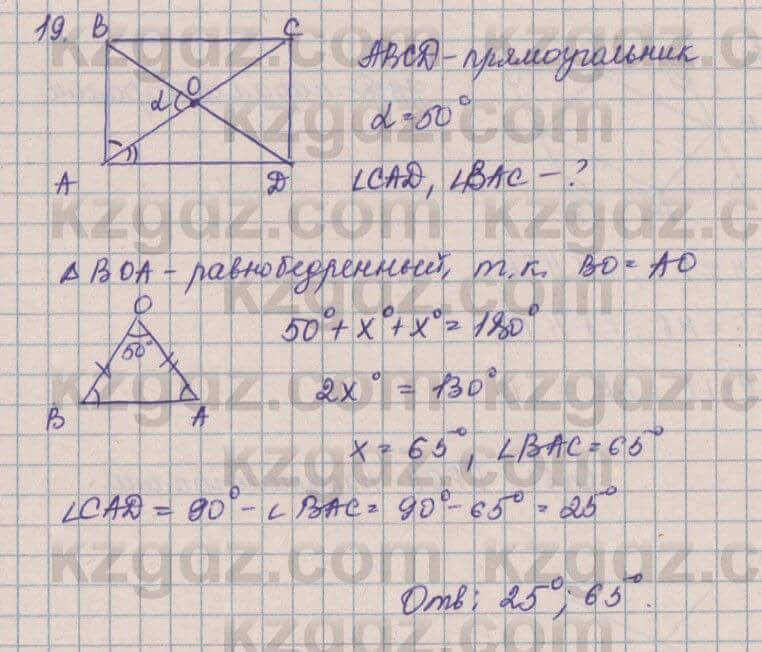 19. B C
ABCD - прямоугольник
O
α
α = 50°
A D
∠CAD, ∠BAC - ?
△BOA - равнобедренный, т.к. BO = AO
O
50° + x° + x° = 180°
50°
2x° = 130°
B A
x = 65°, ∠BAC = 65°
∠CAD = 90° - ∠BAC = 90° - 65° = 25°
Отв: 25°; 65°.
kzgdz.com kzgdz.com
kzgdz.com
kzgdz.com kzgdz.com
kzgdz.com
kzgdz.com kzgdz.com
kzgdz.com
kzgdz.com kzgdz.com
kzgdz.com